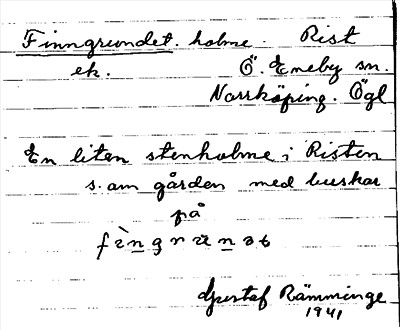 Finngrundet. holme. Rist
ek. Ö. Eneby sn.
Norrköping. Ögl
En liten stenholme i Risten
s. om gården med buskar
på
Gustaf Rämminge
1941